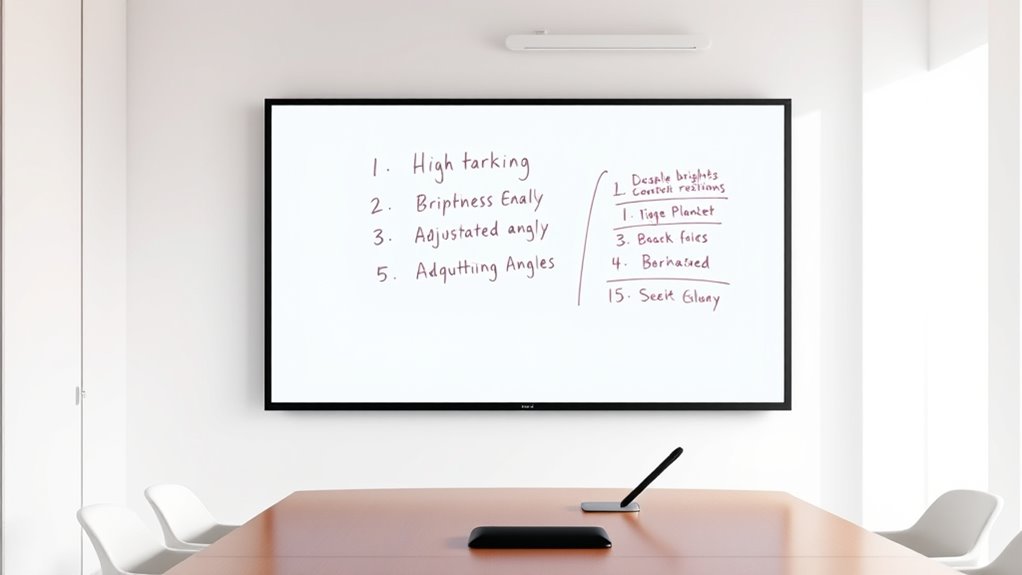 1. High tarking
2. Briptness Enaly
3. Adjustated angly
5. Adquttiing Angles
1. Desple brights
Contek reztions
1. Tioge Planket
3. Baack foies
4. Borhatsed
15. Seeit Glany